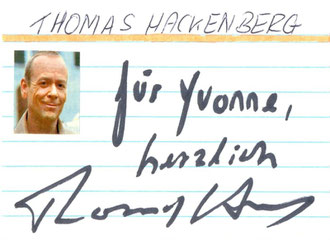 THOMAS HACKENBERG
für Yvonne,
herzlich